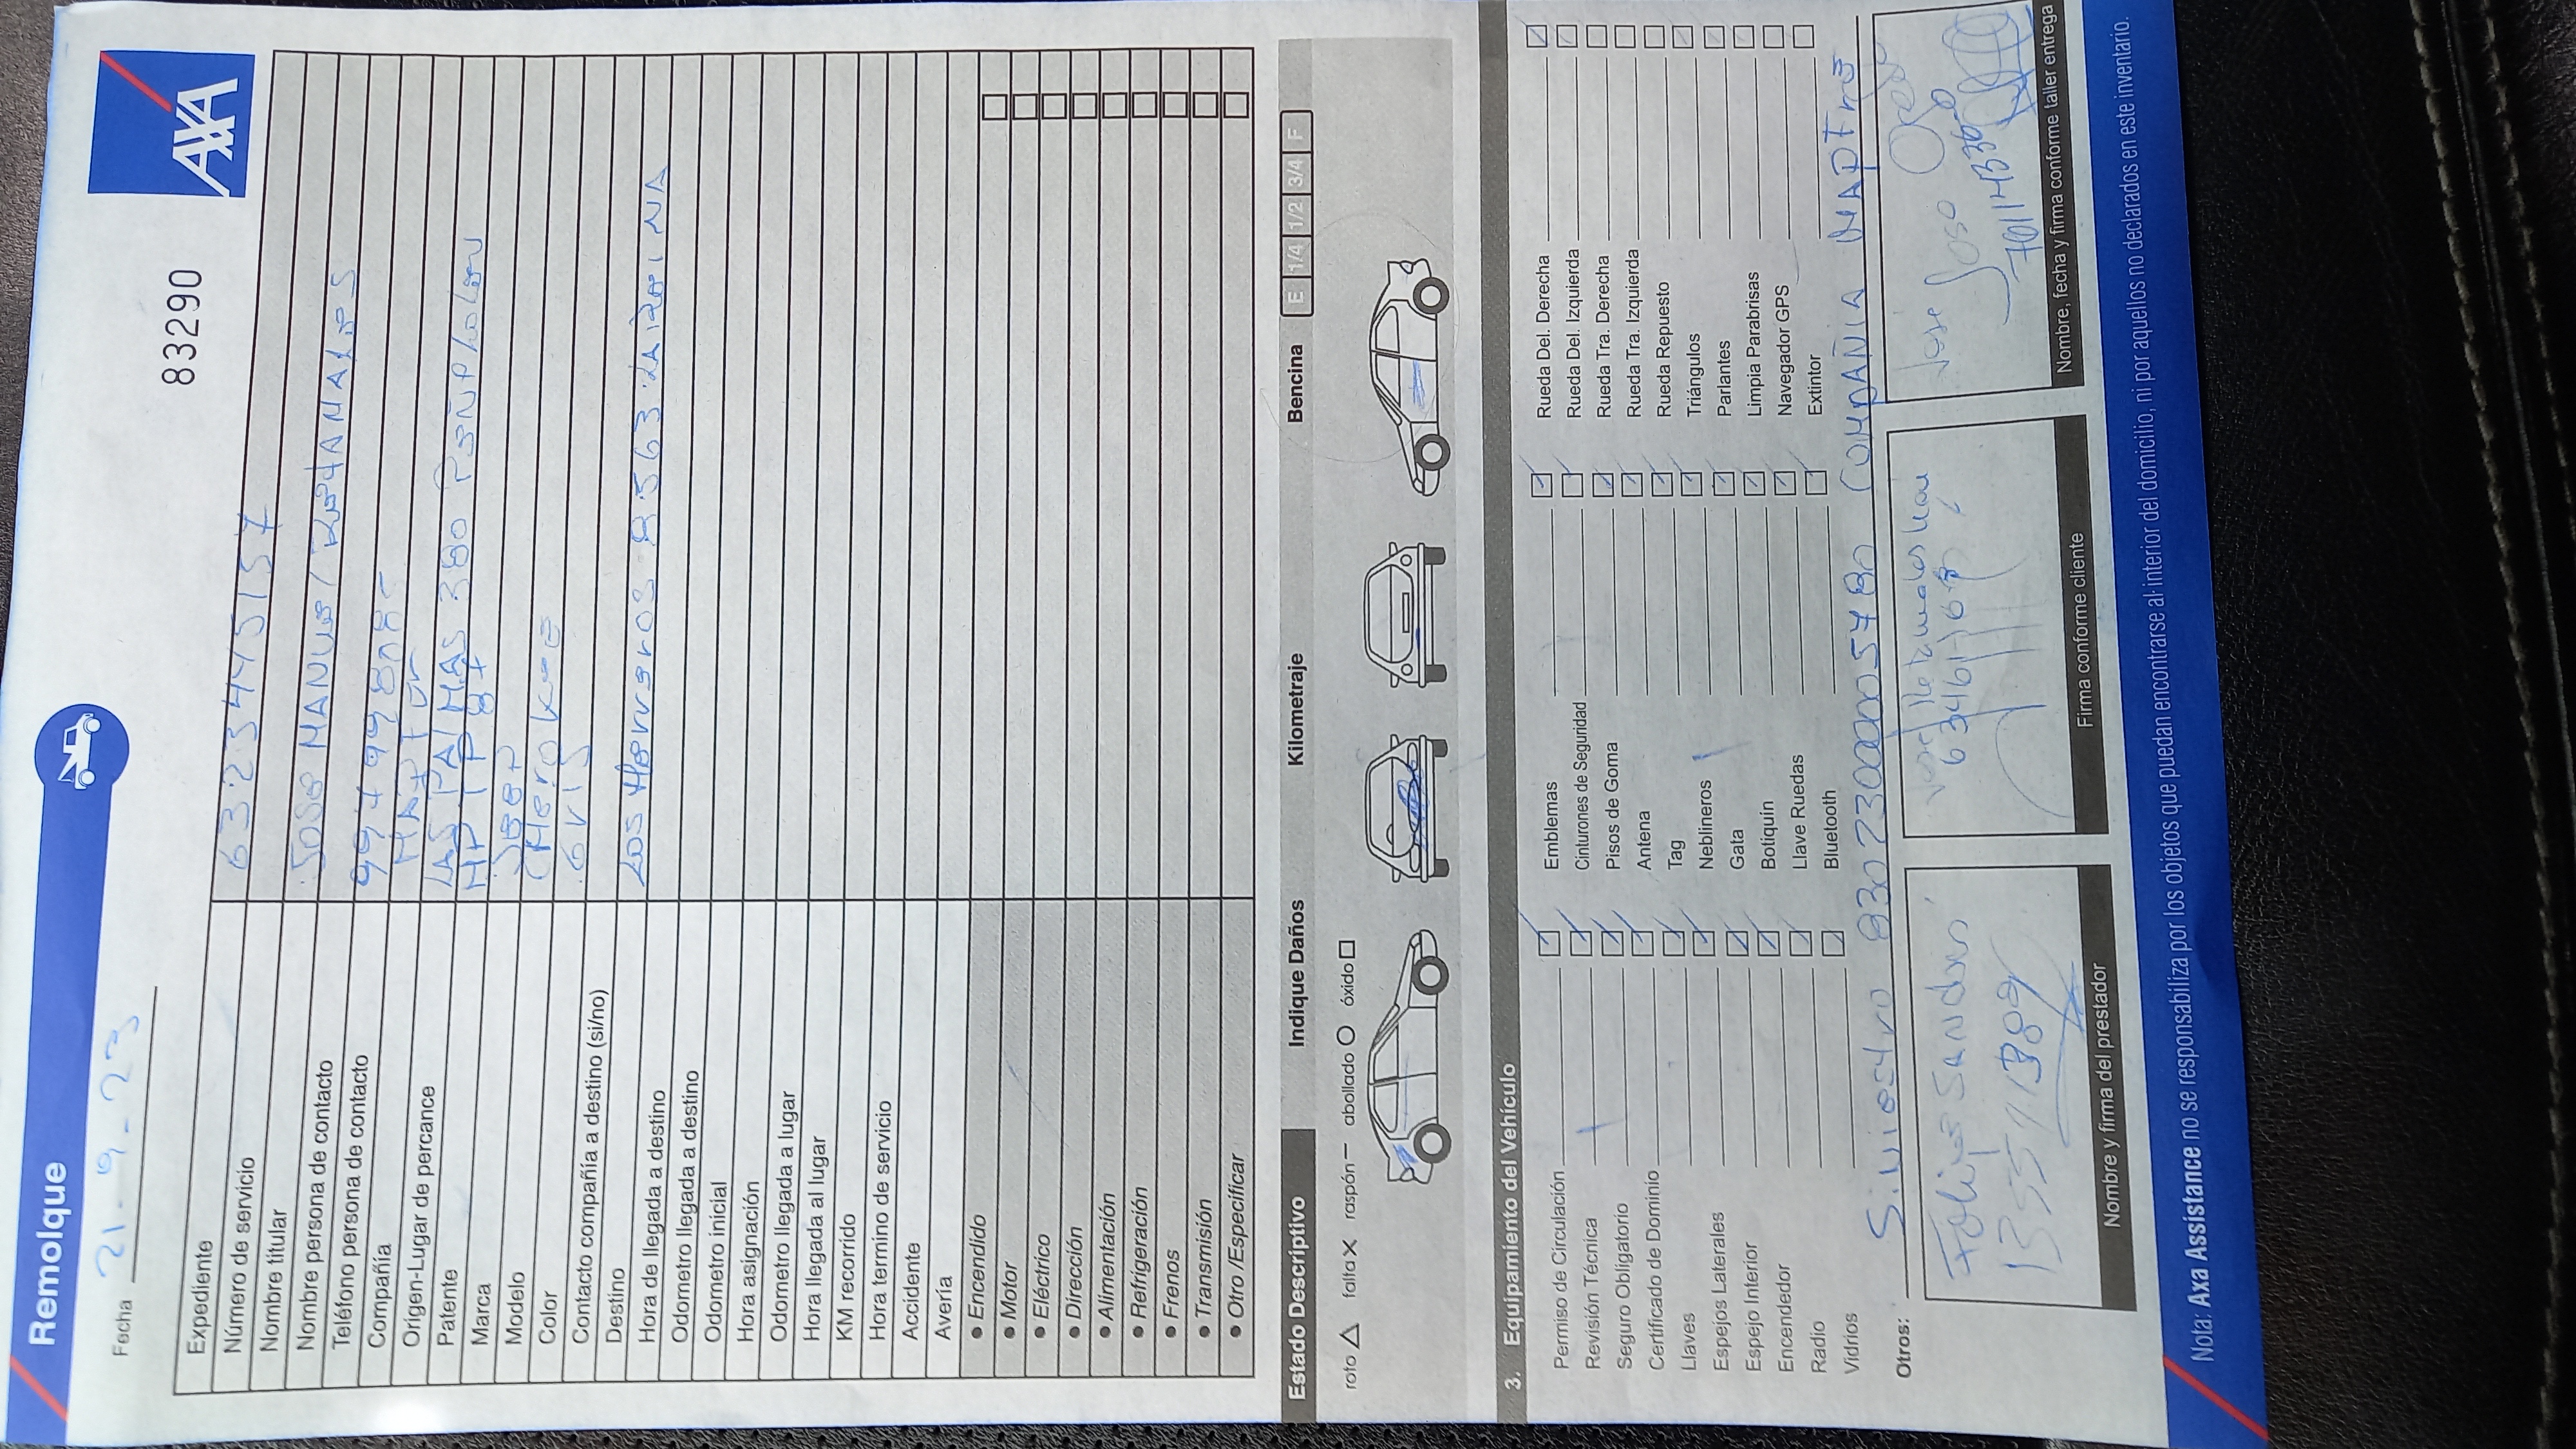 Remolque
AXA
83290
Fecha 21-9-23
Expediente
Número de servicio 632344515 7
Nombre titular
Nombre persona de contacto JOSE MANUEL
Teléfono persona de contacto
Compañía
Origen-Lugar de percance LAS PALMAS 380
Patente
Marca JEEP
Modelo
Color GRIS
Contacto compañía a destino (si/no)
Destino
Hora de llegada a destino
Odometro llegada a destino
Odometro inicial
Hora asignación
Odometro llegada a lugar
Hora llegada al lugar
KM recorrido
Hora termino de servicio
Accidente
Avería
• Encendido
• Motor
• Eléctrico
• Dirección
• Alimentación
• Refrigeración
• Frenos
• Transmisión
• Otro /Especificar
Estado Descriptivo Indique Daños Kilometraje Bencina E 1/4 1/2 3/4 F
roto falta raspón abollado óxido
3. Equipamiento del Vehículo
Permiso de Circulación Emblemas Rueda Del. Derecha
Revisión Técnica Cinturones de Seguridad Rueda Del. Izquierda
Seguro Obligatorio Pisos de Goma Rueda Tra. Derecha
Certificado de Dominio Antena Rueda Tra. Izquierda
Llaves Tag Rueda Repuesto
Espejos Laterales Neblineros Triángulos
Espejo Interior Gata Parlantes
Encendedor Botiquín Limpia Parabrisas
Radio Llave Ruedas Navegador GPS
Vidrios Bluetooth Extintor
Otros: Siniestro COMPAÑIA
José
Nombre y firma del prestador
Firma conforme cliente
Nombre, fecha y firma conforme taller entrega
Nota: Axa Assistance no se responsabiliza por los objetos que puedan encontrarse al interior del domicilio, ni por aquellos no declarados en este inventario.